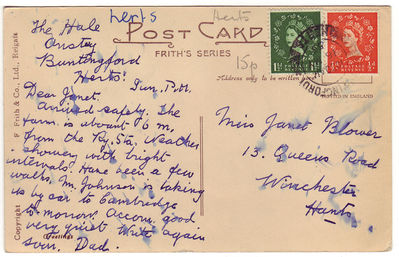 herts
Herts
POST CARD
FRITH'S SERIES
15p
Address only to be written
PRINTED IN ENGLAND
Copyright
F. Frith & Co., Ltd., Reigate
The Hale
Anstey
Buntingford
Herts.
Sun. P.M.
Dear Janet,
Arrived safely. The
farm is about 6 m.
from the Ry. Sta. Weather
showery with bright
intervals. Have been a few
walks. Mr. Johnson is taking
us by car to Cambridge
to-morrow. Accom. good
very quiet. Write again
soon. Dad.
Miss Janet Blower
13. Queens Road
Winchester
Hants